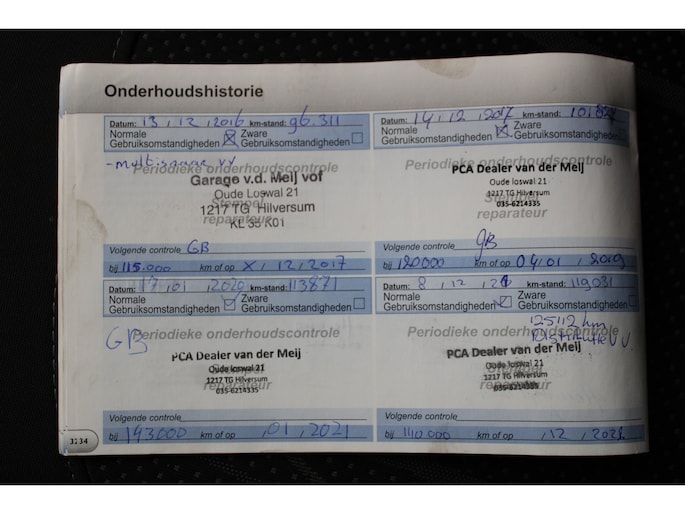 Onderhoudshistorie
Datum: 13 , 12 , 2016 km-stand: 96.311
Normale Gebruiksomstandigheden Zware Gebruiksomstandigheden
-multisnaar vv
Periodieke onderhoudscontrole
Garage v.d. Meij vof
Oude Loswal 21
1217 TG Hilversum
KL 35 K01
Stempel reparateur
Volgende controle GB
bij 115.000 km of op X , 12 , 2017
Datum: 14 , 12 , 2017 km-stand:
Normale Gebruiksomstandigheden Zware Gebruiksomstandigheden
Periodieke onderhoudscontrole
PCA Dealer van der Meij
Oude loswal 21
1217 TG Hilversum
035-6214335
Stempel reparateur
Volgende controle GB
bij 120000 km of op 04 , 01 , 2019
Datum: 17 , 01 , 2020 km-stand: 113871
Normale Gebruiksomstandigheden Zware Gebruiksomstandigheden
GB
Periodieke onderhoudscontrole
PCA Dealer van der Meij
Oude loswal 21
1217 TG Hilversum
035-6214335
Stempel reparateur
Volgende controle
bij 143.000 km of op , 01 , 2021
Datum: 8 , 12 , km-stand: 119031
Normale Gebruiksomstandigheden Zware Gebruiksomstandigheden
Periodieke onderhoudscontrole
125112 km
Distributie V.V.
PCA Dealer van der Meij
Oude loswal 21
1217 TG Hilversum
035-6214335
Stempel reparateur
Volgende controle
bij 140.000 km of op , 12 ,